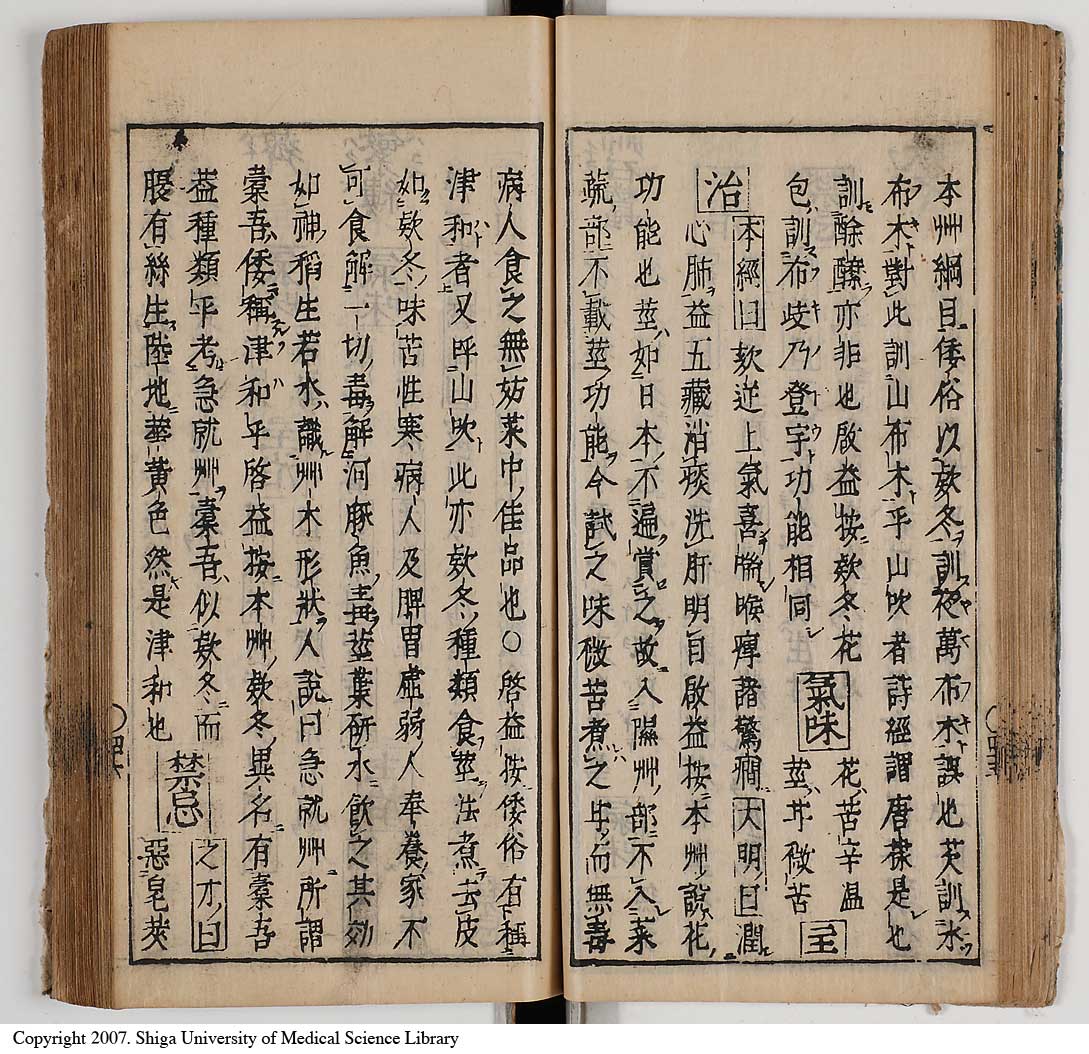 本艸綱目倭俗以欵冬訓夜萬布木誤也芙訓氷
布木對此訓山布木乎山吹者詩經謂唐棣是也
訓酴醿亦非也啟益按欵冬花
包訓布歧乃登宇功能相同
氣味
花苦辛温
莖甘微苦
主
治
本經曰欬逆上氣喜喘喉痺諸驚癇大明曰潤
心肺益五藏消痰洗肝明目啟益按本艸說花
功能也莖如日本不遍賞之故入隰艸部不入菜
蔬部不載莖功能今試之味微苦煮之甘而無毒
病人食之無妨菜中佳品也〇啓益按倭俗有稱
津和者又呼山吹此亦欵冬種類食莖法煮去皮
如欵冬味苦性寒病人及脾胃虚弱人奉養家不
可食解一切毒解河豚魚毒莖葉研水飲之其効
如神稻生若水識艸木形狀人說曰急就艸所謂
橐吾倭稱津和乎啓益按本艸欵冬異名有橐吾
葢種類乎考急就艸橐吾似欵冬而
腹有絲生陸地華黄色然是津和也
禁忌
之才曰
惡皂莢
Copyright 2007. Shiga University of Medical Science Library